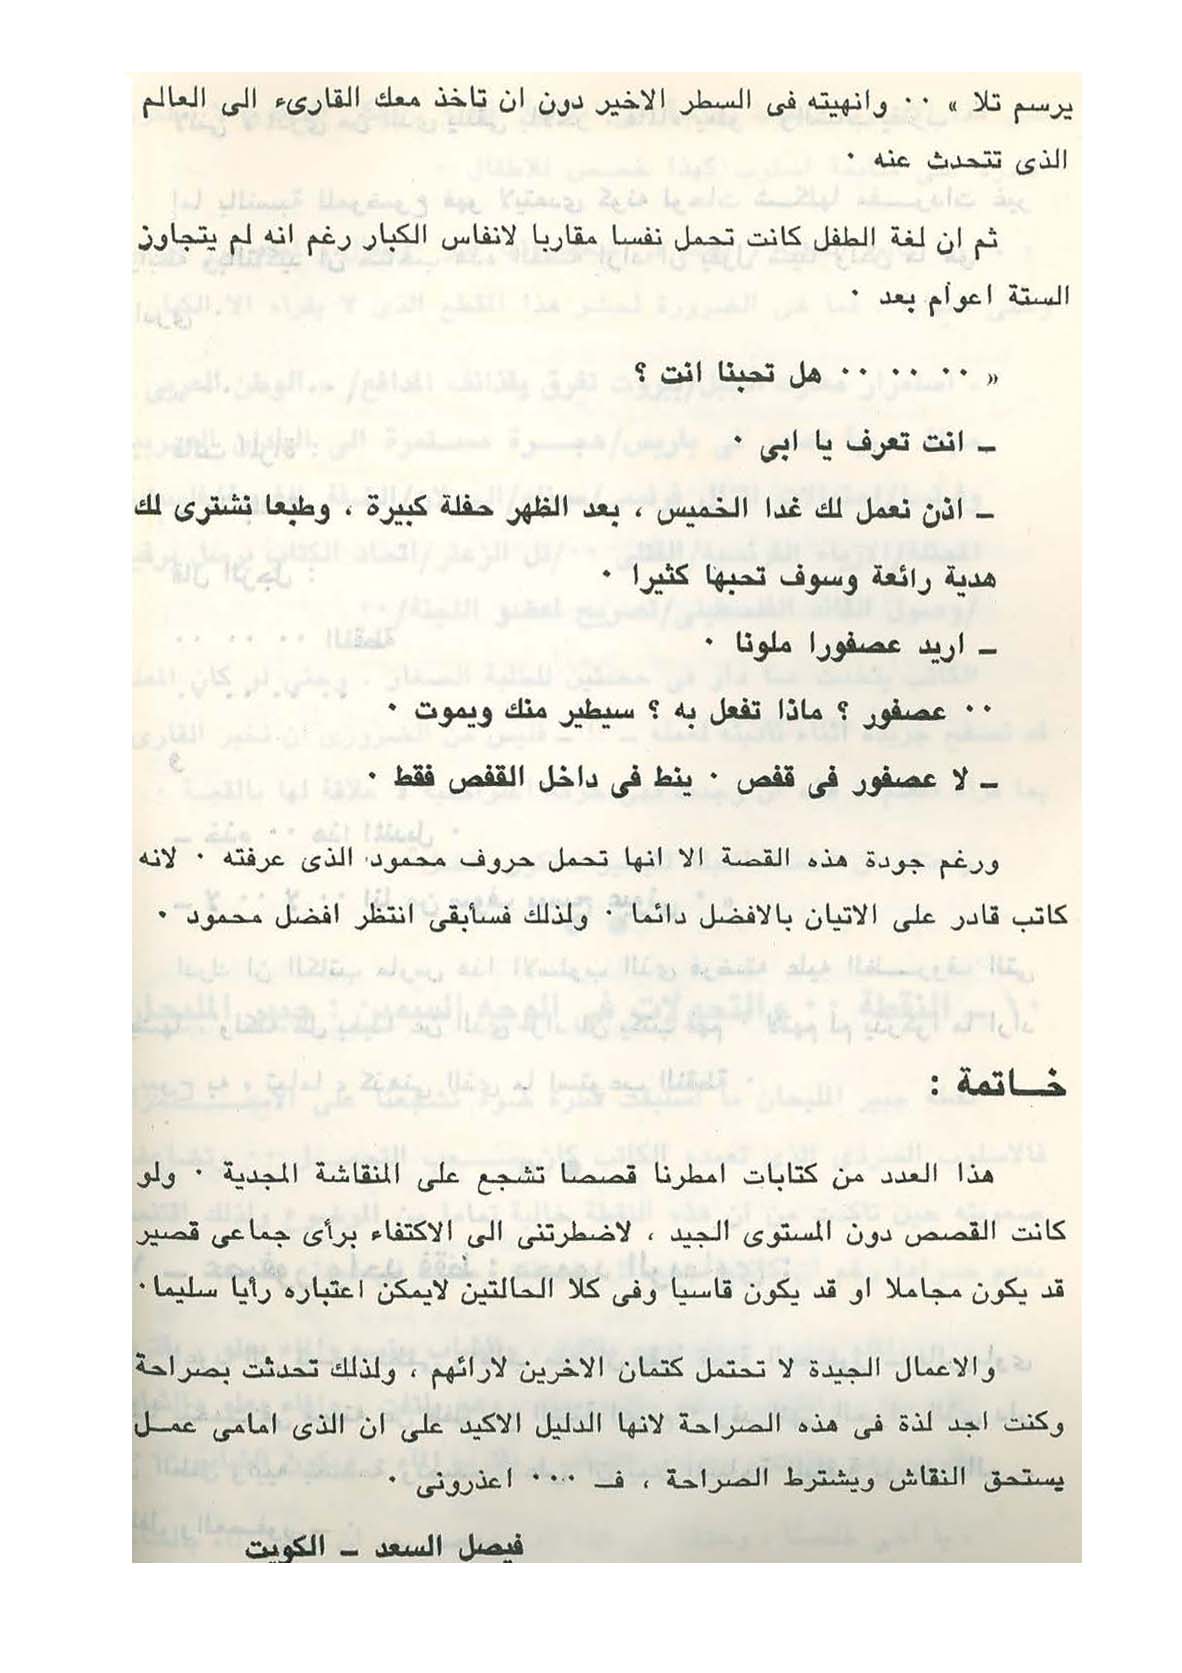 يرسم تلا » ٠٠ وانهيته فى السطر الاخير دون ان تاخذ معك القارىء الى العالم
الذى تتحدث عنه ٠
ثم ان لغة الطفل كانت تحمل نفسا مقاربا لانفاس الكبار رغم انه لم يتجاوز
الستة اعوام بعد ٠
« ٠٠ ٠٠ ٠٠ هل تحبنا انت ؟
ــ انت تعرف يا ابى ٠
ــ اذن نعمل لك غدا الخميس ، بعد الظهر حفلة كبيرة ، وطبعا نشترى لك
هدية رائعة وسوف تحبها كثيرا ٠
ــ اريد عصفورا ملونا ٠
٠٠ عصفور ؟ ماذا تفعل به ؟ سيطير منك ويموت ٠
ــ لا عصفور فى قفص ٠ ينط فى داخل القفص فقط ٠
ورغم جودة هذه القصة الا انها تحمل حروف محمود الذى عرفته ٠ لانه
كاتب قادر على الاتيان بالافضل دائما ٠ ولذلك فسأبقى انتظر افضل محمود ٠
خــاتمة :
هذا العدد من كتابات امطرنا قصصا تشجع على المنقاشة المجدية ٠ ولو
كانت القصص دون المستوى الجيد ، لاضطرتنى الى الاكتفاء برأى جماعى قصير
قد يكون مجاملا او قد يكون قاسيا وفى كلا الحالتين لايمكن اعتباره رأيا سليما٠
والاعمال الجيدة لا تحتمل كتمان الاخرين لارائهم ، ولذلك تحدثت بصراحة
وكنت اجد لذة فى هذه الصراحة لانها الدليل الاكيد على ان الذى امامى عمــل
يستحق النقاش ويشترط الصراحة ، فــ ٠٠٠ اعذرونى ٠
فيصل السعد ــ الكويت